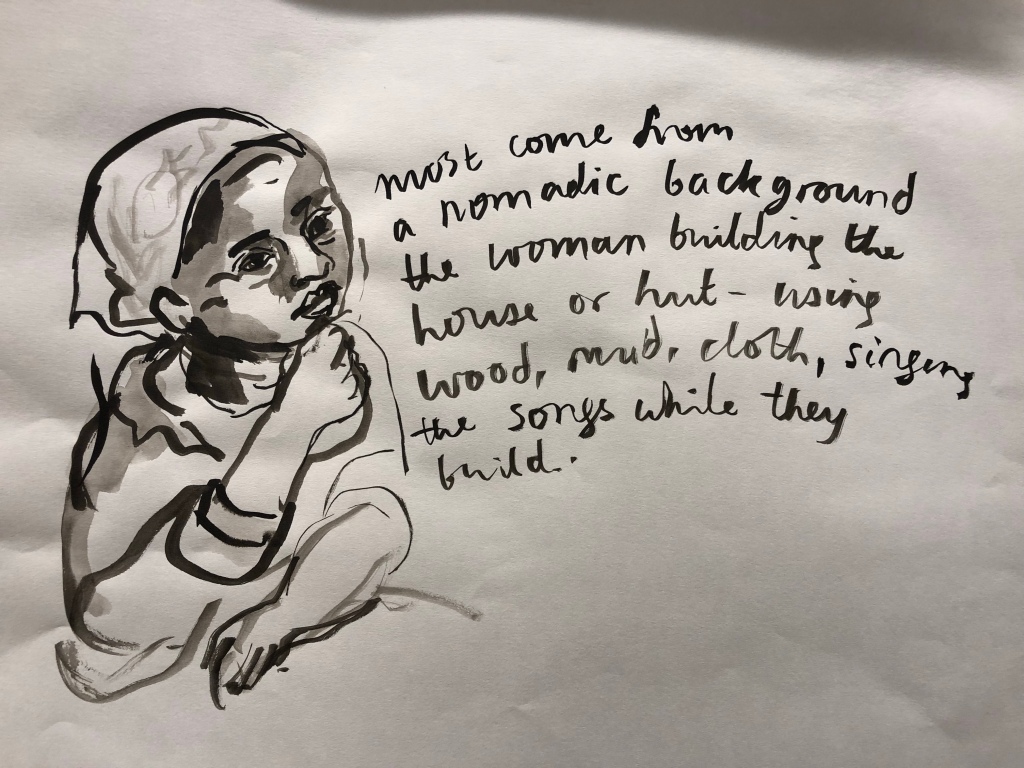 most come from
a nomadic background
the woman building the
house or hut - using
wood, mud, cloth, singing
the songs while they
build.